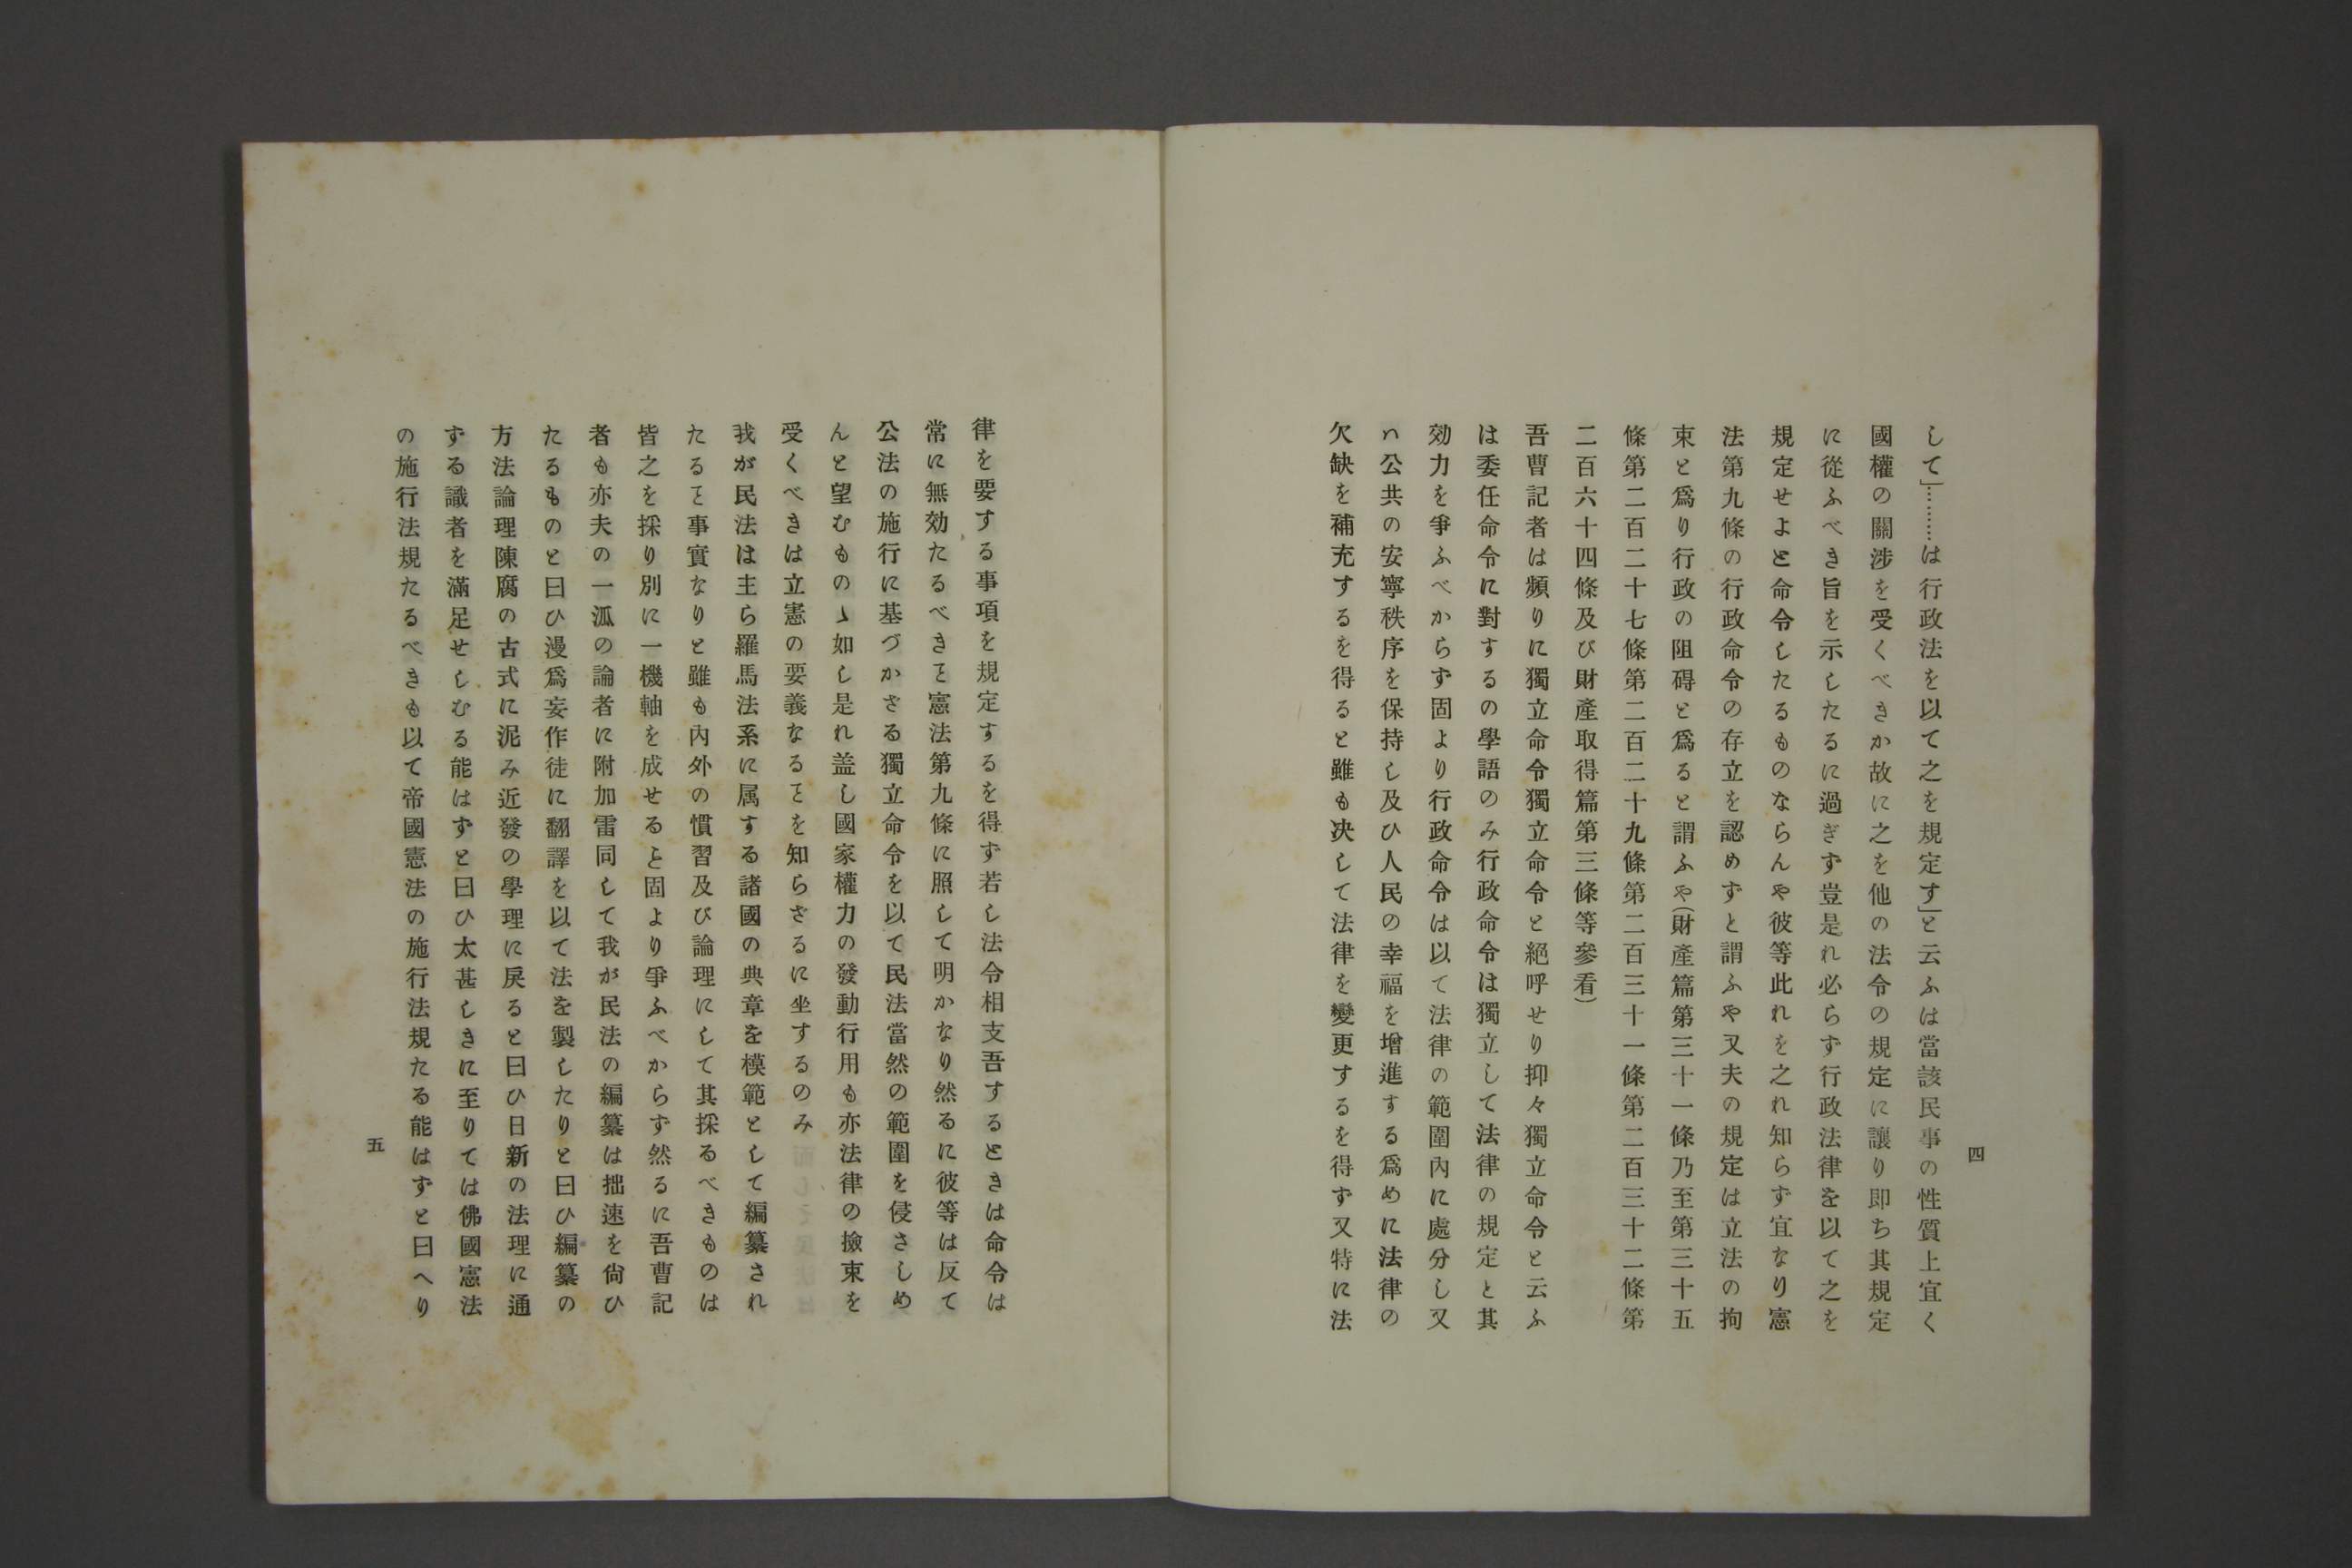 四
して」………は行政法を以て之を規定す」と云ふは當該民事の性質上宜く
國權の關渉を受くべきか故に之を他の法令の規定に讓り即ち其規定
に從ふべき旨を示したるに過ぎず豈是れ必らず行政法律を以て之を
規定せよと命令したるものならんや彼等此れを之れ知らず宜なり憲
法第九條の行政命令の存立を認めずと謂ふや又夫の規定は立法の拘
束と爲り行政の阻碍と爲ると謂ふや(財產篇第三十一條乃至第三十五
條第二百二十七條第二百二十九條第二百三十一條第二百三十二條第
二百六十四條及び財產取得篇第三條等參看)
吾曹記者は頻りに獨立命令獨立命令と絕呼せり抑々獨立命令と云ふ
は委任命令に對するの學語のみ行政命令は獨立して法律の規定と其
効力を爭ふべからず固より行政命令は以て法律の範圍內に處分し又
ハ公共の安寧秩序を保持し及ひ人民の幸福を增進する爲めに法律の
欠缺を補充するを得ると雖も决して法律を變更するを得ず又特に法
律を要する事項を規定するを得ず若し法令相支吾するときは命令は
常に無効たるべきヿ憲法第九條に照して明かなり然るに彼等は反て
公法の施行に基づかさる獨立命令を以て民法當然の範圍を侵さしめ
んと望むものゝ如し是れ盖し國家權力の發動行用も亦法律の撿束を
受くべきは立憲の要義なるヿを知らざるに坐するのみ
我が民法は主ら羅馬法系に属する諸國の典章を模範として編纂され
たるヿ事實なりと雖も內外の慣習及び論理にして其採るべきものは
皆之を採り別に一機軸を成せると固より爭ふべからず然るに吾曹記
者も亦夫の一派の論者に附加雷同して我が民法の編纂は拙速を尙ひ
たるものと曰ひ漫爲妄作徒に翻譯を以て法を製したりと曰ひ編纂の
方法論理陳腐の古式に泥み近發の學理に戾ると曰ひ日新の法理に通
ずる識者を滿足せしむる能はずと曰ひ太甚しきに至りては佛國憲法
の施行法規たるべきも以て帝國憲法の施行法規たる能はずと曰へり
五